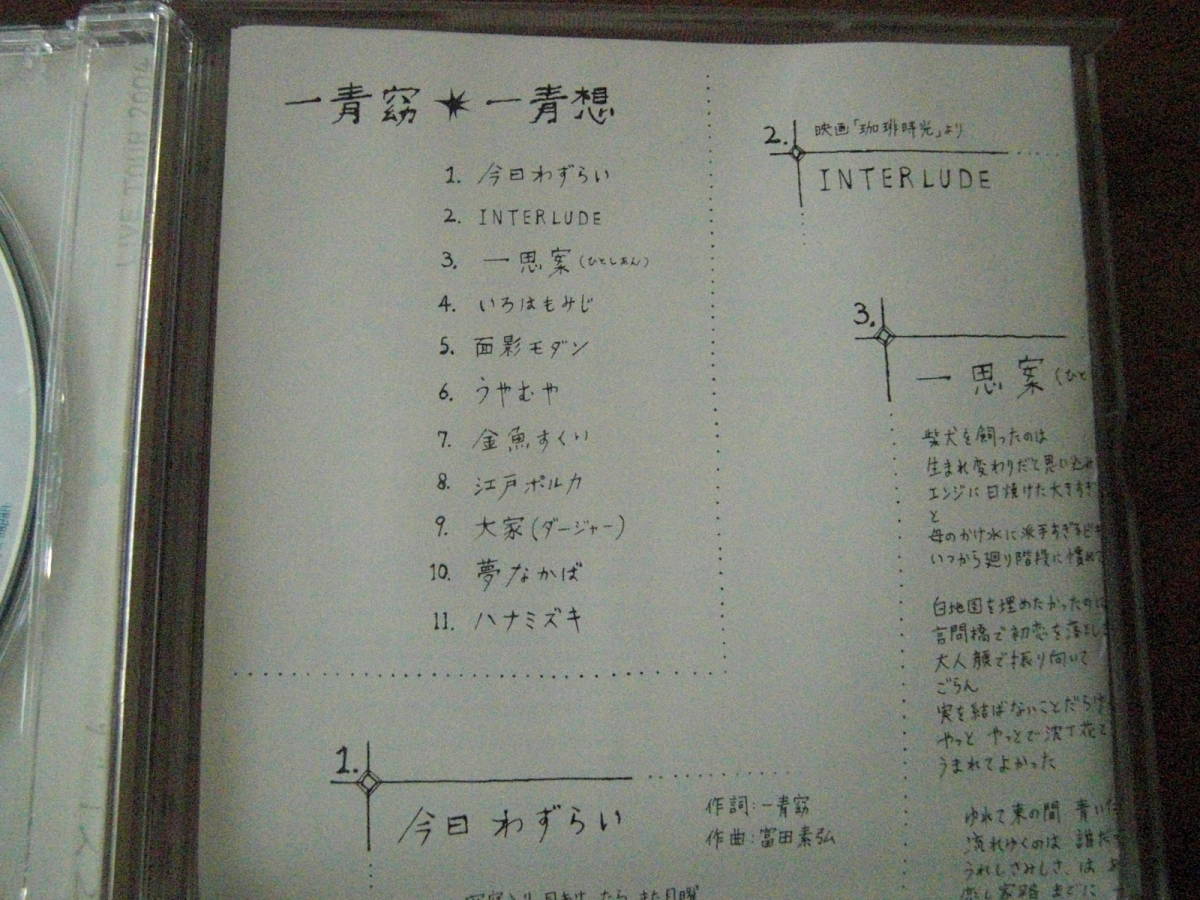 一青窈★一青想
1. 今日わずらい
2. INTERLUDE
3. 一思案(ひとしあん)
4. いろはもみじ
5. 面影モダン
6. うやむや
7. 金魚すくい
8. 江戸ポルカ
9. 大家(ダージャー)
10. 夢なかば
11. ハナミズキ
1.
今日わずらい
作詞:一青窈
作曲:富田素弘
2.
映画「珈琲時光」より
INTERLUDE
3.
一思案(ひと
柴犬を飼ったのは
生まれ変わりだと思い込み
エンジに日焼けた大きすぎ
と
母のかけ水に派手すぎる
いつから廻り階段に慣れて
白地図を埋めたかったのは
言問橋で初恋を落とし
大人顔で振り向いて
ごらん
実を結ばないことだらけ
やっと やっとで沈丁花と
うまれてよかった
ゆれて束の間 青い
流れゆくのは 誰だ
うれしさみしさ、は
恋し家路 までに
LIVE TOUR 2004